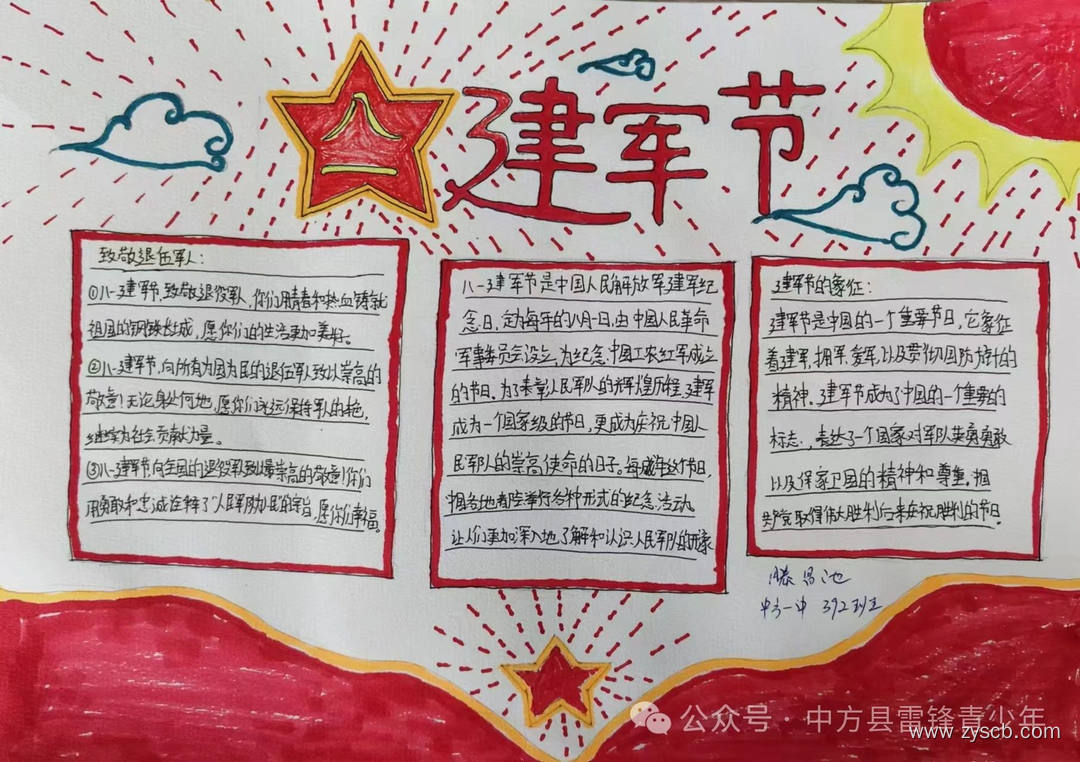 八一
建军节
致敬退伍军人：
①八一建军节，致敬退役军人，你们用青春和热血铸就
祖国的钢铁长城，愿你们的生活更加美好。
②八一建军节，向所有为国为民的退伍军人致以崇高的
敬意！无论身处何地，愿你们永远保持军人的本色，
继续为社会贡献力量。
③八一建军节向全国的退役军人致以最崇高的敬意！你们
用勇敢和忠诚诠释了“人民军队为人民”的宗旨，愿你们幸福。
八一建军节是中国人民解放军建军纪
念日，定为每年的八月一日，由中国人民革命
军事委员会设立，为纪念中国工农红军成立
的节日。为了表彰人民军队的辉煌历程，建军
成为一个国家级的节日，更成为庆祝中国人
民军队的崇高使命的日子。每咸许这个节日，
祖各地都会举行各种形式的纪念活动。
让人们更加深入地了解和认识人民军队的形象
建军节的象征：
建军节是中国的一个重要节日，它象征
着建军、拥军、爱军，以及贯彻国防旗帜的
精神。建军节成为了中国的一个重要的
标志，表达了一个国家对军队英勇勇敢
以及保家卫国的精神和尊重。祖
共产党取得伟大胜利后来庆祝胜利的节日。
滕昌池
中方一中 392班
公众号·中方县雷锋青少年
www.zyscb.com